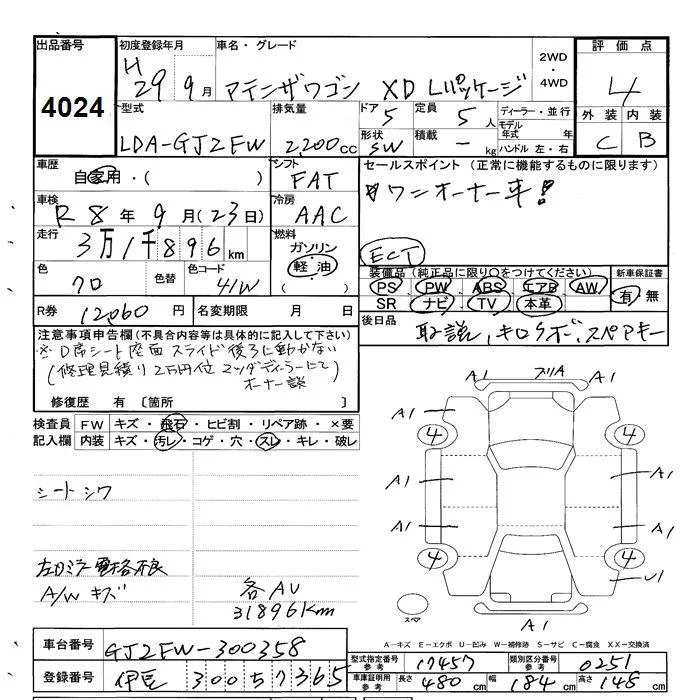 出品番号 初度登録年月 車名・グレード 2WD・4WD 評価点
4024 H29 9月 アテンザワゴン XD Lパッケージ 4
型式 排気量 ドア 定員 ディーラー・並行 外装 内装
LDA-GJ2FW 2,200cc 5 5人 モデル年式 年 C B
形状 積載 ハンドル 左・右
SW - kg
車歴 シフト セールスポイント (正常に機能するものに限ります)
自家用・( ) FAT ワンオーナー車!
車検 冷房
R8年9月(23日) AAC
走行 燃料
3万1千896km ガソリン 軽油 ECT
色 色替 色コード 装備品(純正品に限り○をつけてください) 新車保証書
クロ 41W PS PW ABS エアB AW 有・無
SR ナビ TV 本革
R券 12060円 名変期限 月 日 後日品
取説、キロクボ、スペアキー
注意事項申告欄(不具合内容等は具体的に記入して下さい)
※D席シート座面スライド後ろに動かない
(修理見積り2万円位 マツダディーラーにて)
オーナー談
修復歴 有〔箇所 〕
検査員 FW キズ・飛石・ヒビ割・リペア跡・×要
記入欄 内装 キズ・汚レ・コゲ・穴・スレ・キレ・破レ
シートシワ
左ドアミラー電格不良
A/Wキズ
各AU
31896km
A1 フリA A1
A1 A1
4 4
A1 A1
A1 A1
4 4
U1
スペア A1
A−キズ E−エクボ U−凹み W−補修跡 S−サビ C−腐食 XX−交換済
車台番号 GJ2FW-300358 型式指定番号 参考 17457 類別区分番号 参考 0251
登録番号 伊豆 300 そ 7365 車庫証明用 参考 長さ 480cm 幅 184cm 高さ 148cm